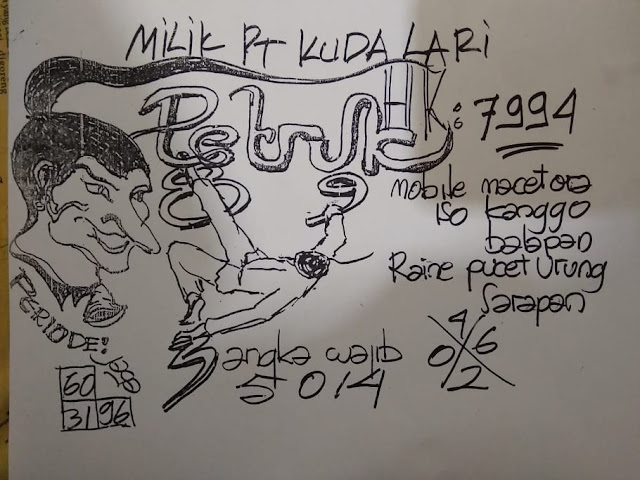 MILIK PT KUDA LARI
Petruk
HK: 7994
6
8 9
mobile macet ora
iso kanggo
balapan
Raine pucet Urung
Sarapan
PERIODE:
3 angka wajib
5 0 1 4
4
0 6
2
60
31 96